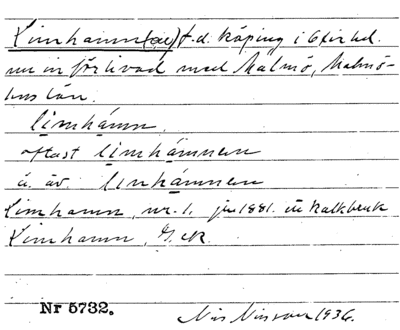 Limhamn(en) f.d. köping i Oxie hd.
nu införlivad med Malmö, Malmö-
hus län.
limhámn,
oftast limhámnen
ä. äv. linhámnen
Limhamn, nr. 1. jfr 1881. Kalkbruk
Limhamn, G. ek
Nr 5732.
Nils Nilsson 1936.